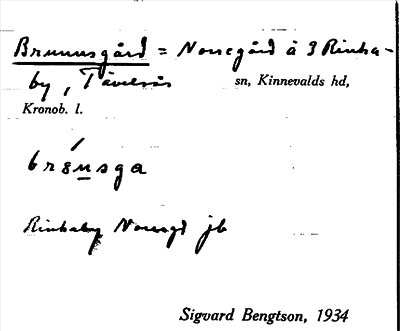 Brunnsgård = Norregård å 3 Rinka-
by, Tävelsås sn, Kinnevalds hd,
Kronob. l.
Rinkaby Norregd jb
Sigvard Bengtson, 1934